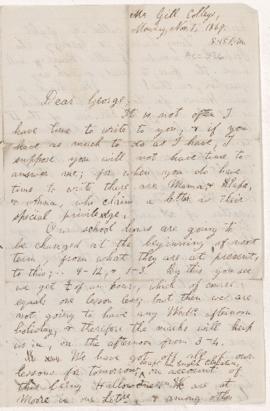 Mc Gill College
Monday, Nov. 1, 1869.
8.45 P.M.
Dear George,
It is not often I
have time to write to you, & if you
have as much to do as I have, I
suppose you will not have time to
answer me; for when you do have
time to write there are Mama, & Papa,
& Anna, who claim a letter as their
special priviledge.
Our school hours are going to
be changed at the beginning of next
term, from what they are at present,
to this; - 9-12, & 1-3. By this you see
we get ¾ of an hour, which of course
equals one lesson less, but then we are
not going to have any Wed. afternoon
holiday, & therefore the marks will help
us in, on the afternoon from 3-4.
We have got off all our
lessons for tomorrow, on account of
this being Halloween. We are at
in our Latin, & among other